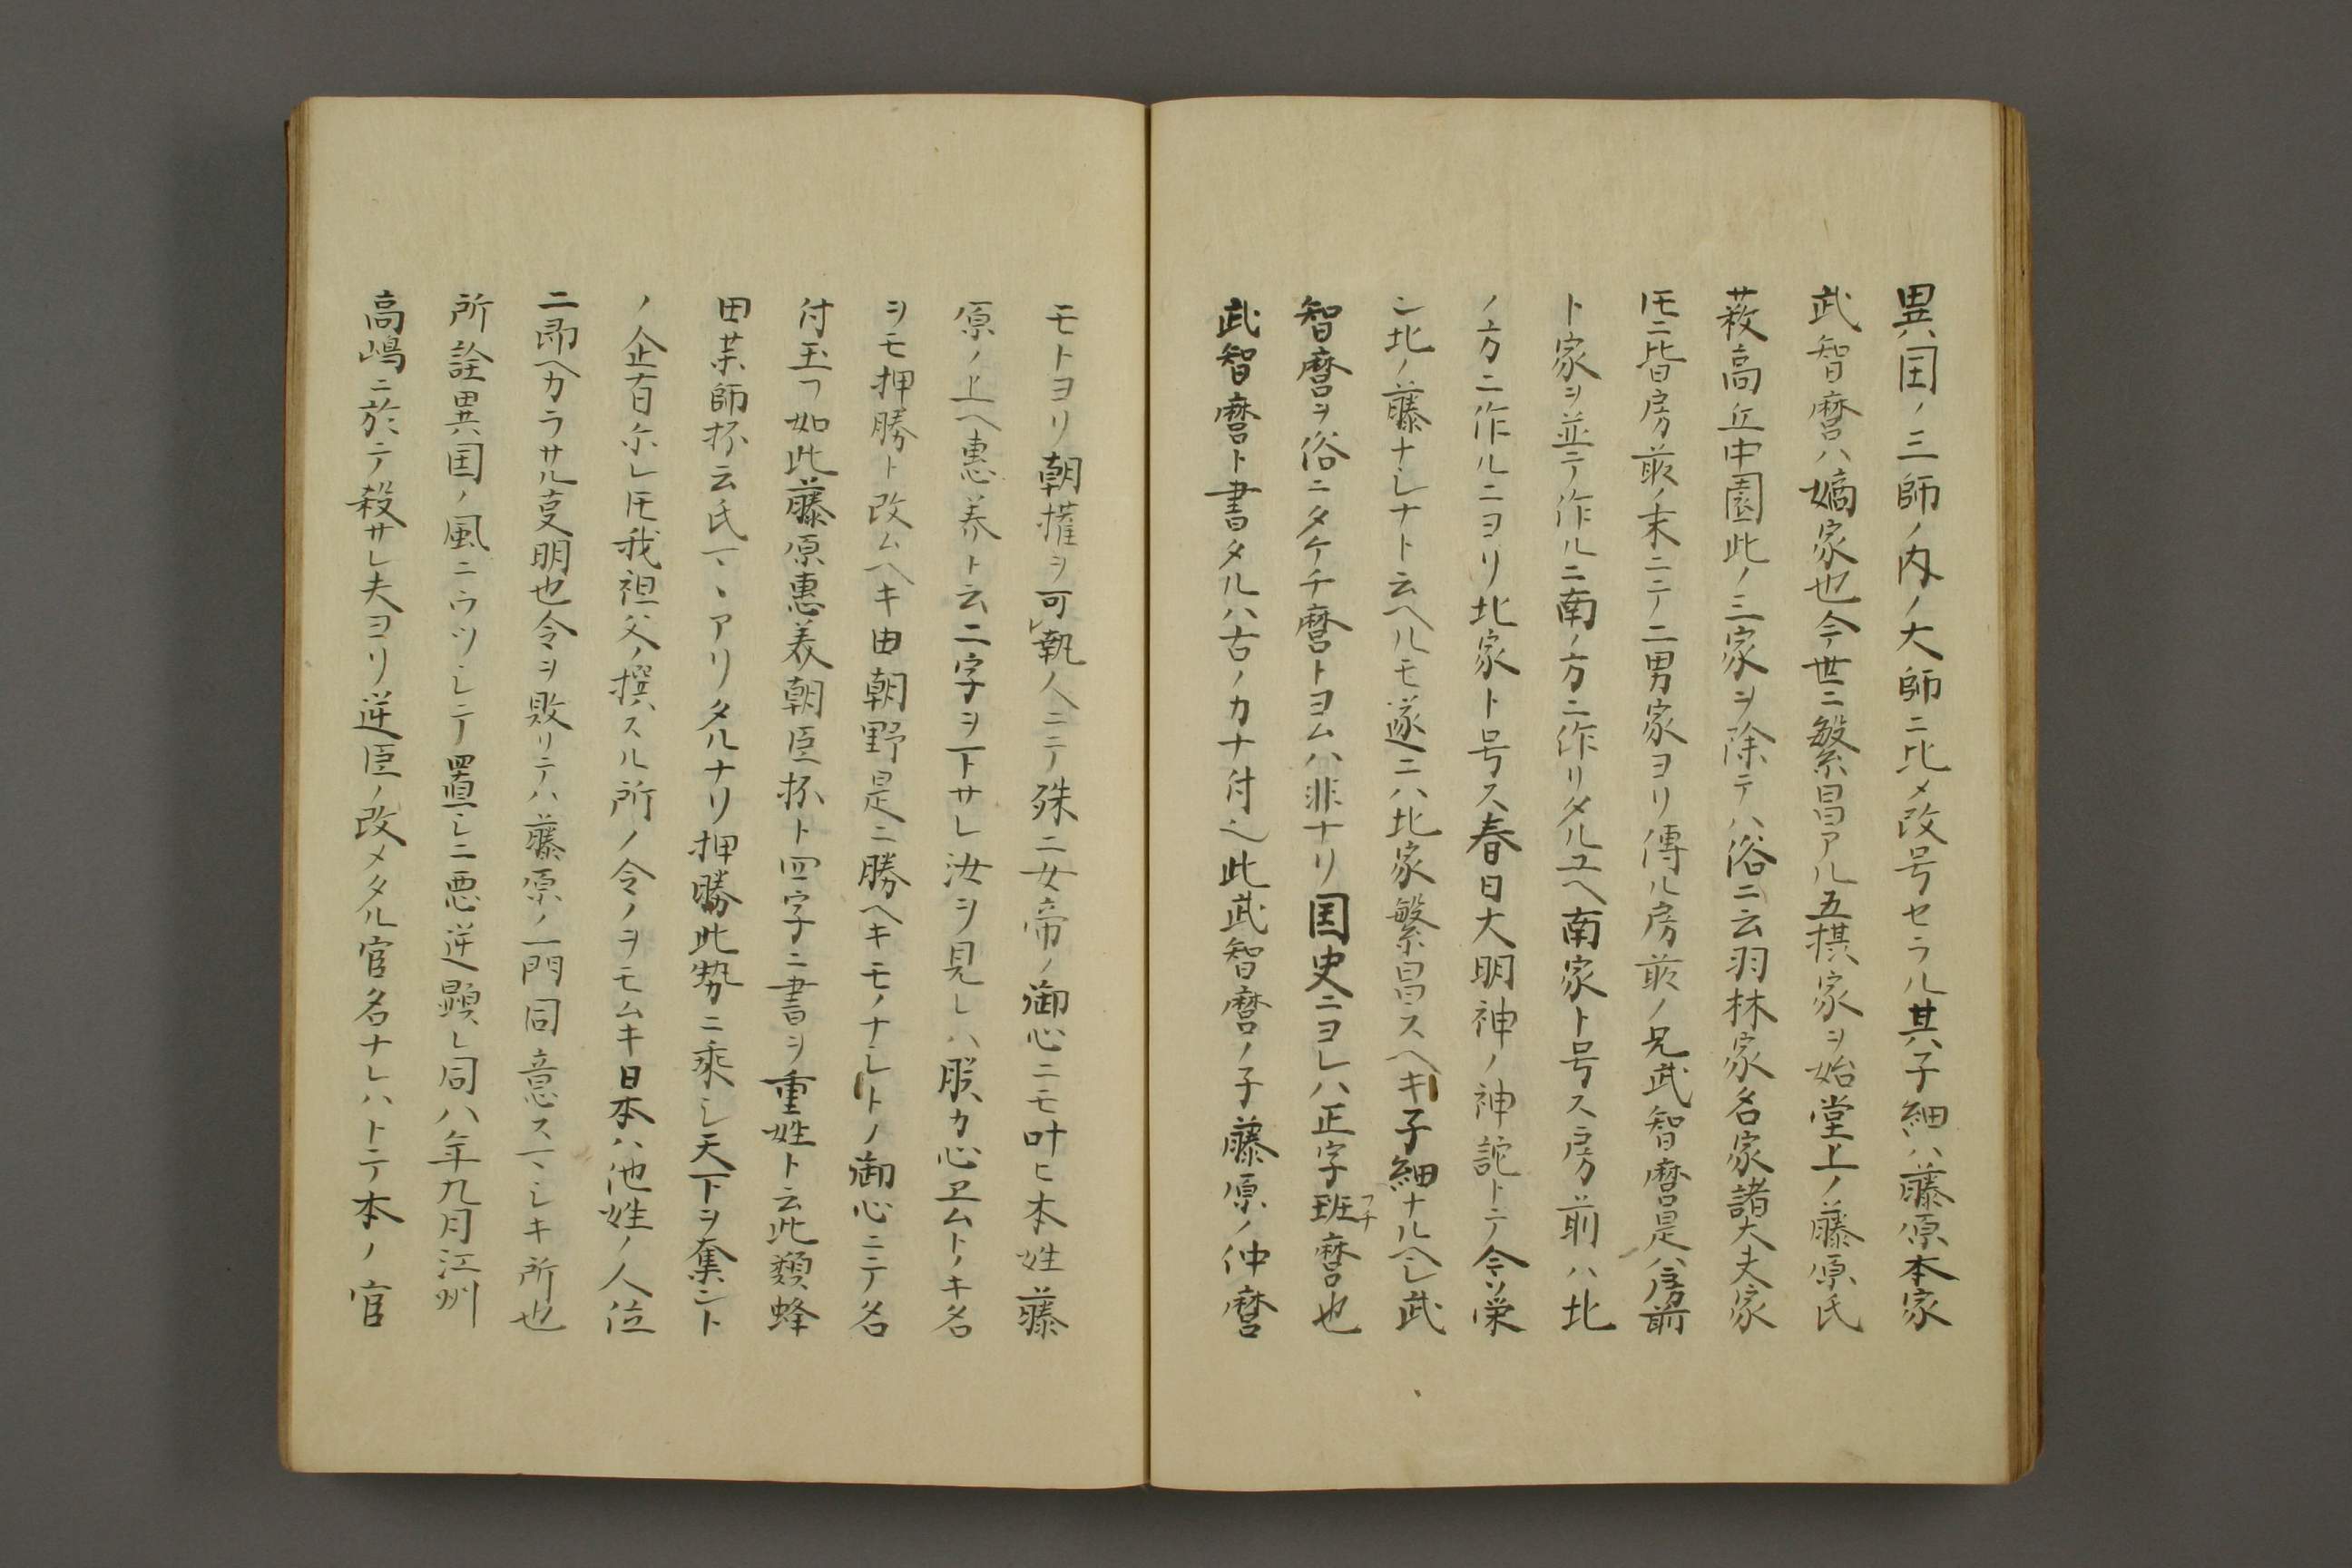 異国ノ三師ノ内ノ大師ニ比メ改号セラル其子細ハ藤原本家
武智麿ハ嫡家也今世ニ繁昌アル五摂家ヲ始堂上ノ藤原氏
薮高丘中園此ノ三家ヲ除テハ俗ニ云羽林家名家諸大夫家
トモニ皆房前ノ末ニテ二男家ヨリ傳ル房前ノ兄武智麿是ハ房前
ト家ヲ並テ作ルニ南ノ方ニ作リタルユヘ南家ト号ス房前ハ北
ノ方ニ作ルニヨリ北家ト号ス春日大明神ノ神詫トテ今ソ栄
ン北ノ藤ナレナト云ヘルモ遂ニハ北家繁昌スヘキ子細ナルヘシ武
智麿ヲ俗ニタケチ麿トヨムハ非ナリ国史ニヨレハ正字斑フチ麿也
武智麿ト書タルハ古ノカナ付也此武智麿ノ子藤原ノ仲麿
モトヨリ朝権ヲ可レ執人ニテ殊ニ女帝ノ御心ニモ叶ヒ本姓藤
原ノ上ヘ惠美ト云二字ヲ下サレ汝ヲ見レハ朕カ心ヱムトノキ名
ヲモ押勝ト改ムヘキ由朝野是ニ勝ヘキモノナシトノ御心ニテ名
付玉フ如此藤原惠美朝臣抔ト四字ニ書ヲ重姓ト云此類蜂
田薬師抔云氏マヽアリタルナリ押勝此勢ニ乗シ天下ヲ奪ント
ノ企有尓レトモ我祖父ノ撰スル所ノ令ノヲモムキ日本ハ他姓ノ人位
ニ即ヘカラサル叓明也令ヲ敗リテハ藤原ノ一門同意スマシキ所也
所詮異国ノ風ニウツシテ置シニ悪逆顕レ同八年九月江州
高嶋ニ於テ殺サレ夫ヨリ逆臣ノ改メタル官名ナレハトテ本ノ官